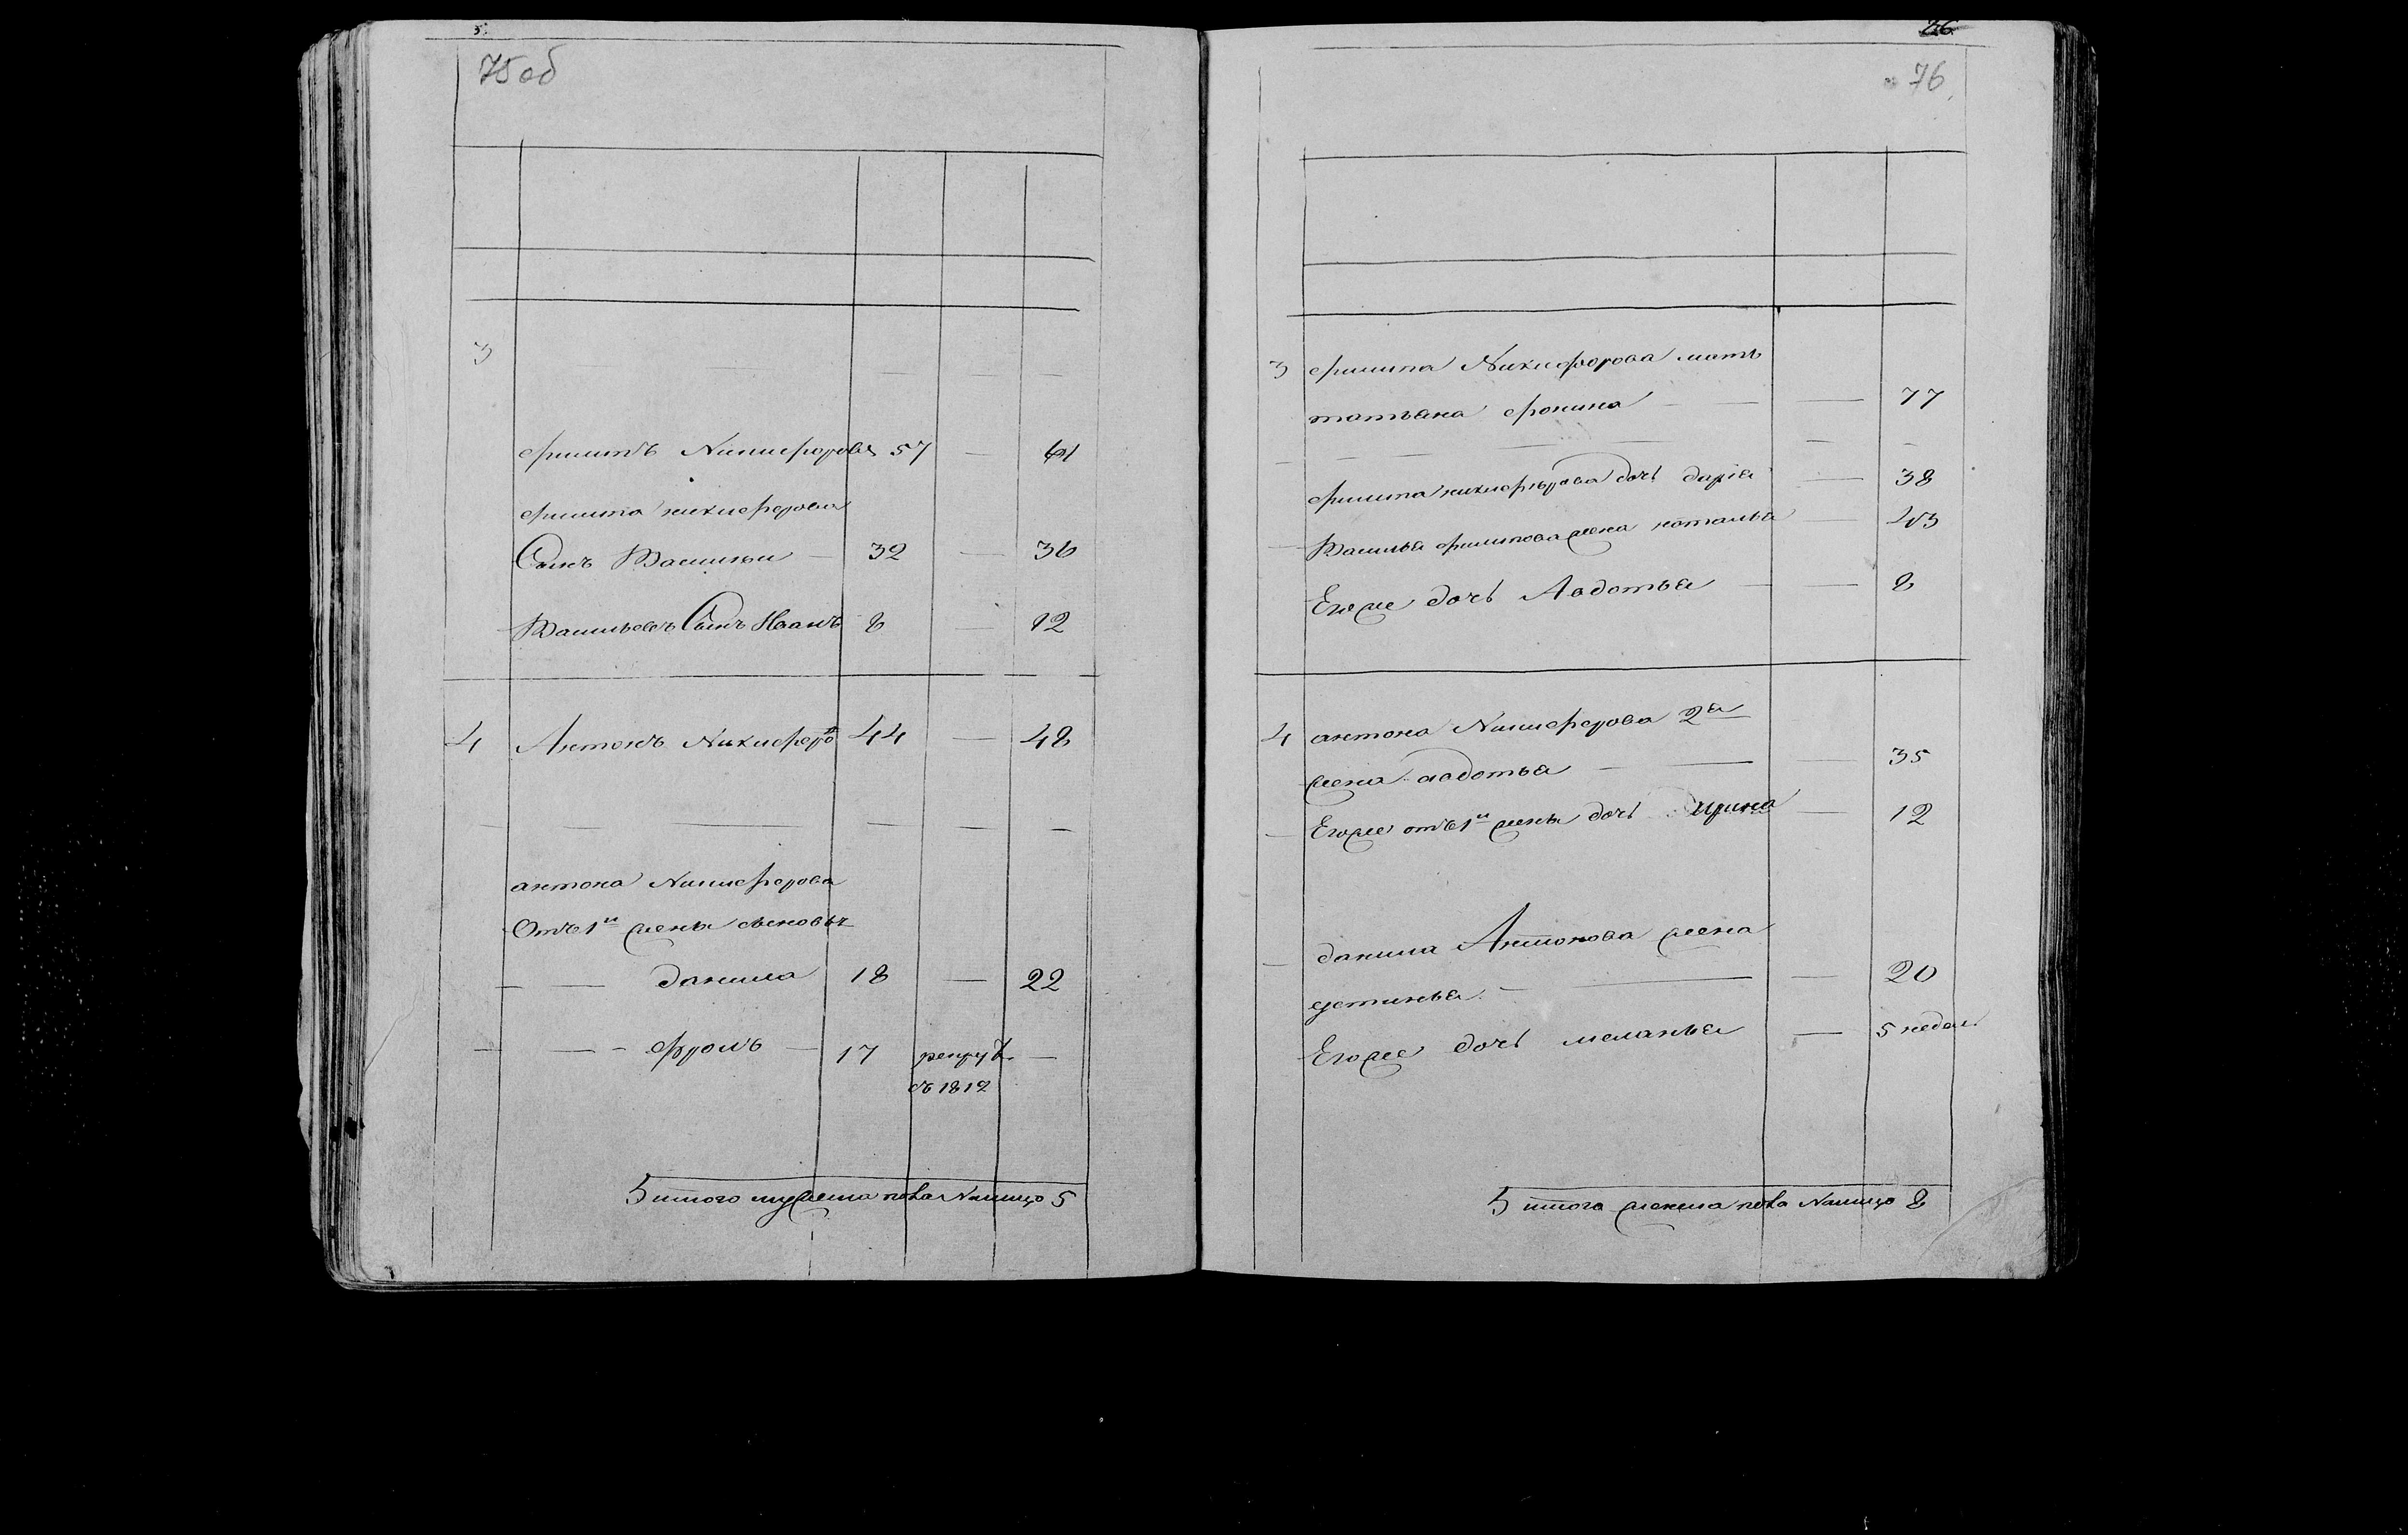 75 об
3
филипъ Никифоровъ 57 — 61
филипа никифорова
Сынъ Василии — 32 — 36
Васильевъ Сынъ Иванъ 8 12
4 Антонъ Никифоров 44 — 48
антона Никифорова
Отъ 1й жены сыновья
данила 18 — 22
фролъ — 17 рекрут —
въ 1812
итого мужеска пола Налицо 5
76
3 филипа Никифорова мать
татьяна фокина — — 77
филипа никифорова дочь дарья — 38
Василья филипова жена наталья — 43
Его же дочь Авдотья — — 8
4 антона Никифорова 2я
жена авдотья — — — 35
Его же отъ 1й жены дочь Ирина — 12
данила Антонова жена
устинья — — — 20
Его же дочь меланья — 5 недель
итого женска пола Налицо 8